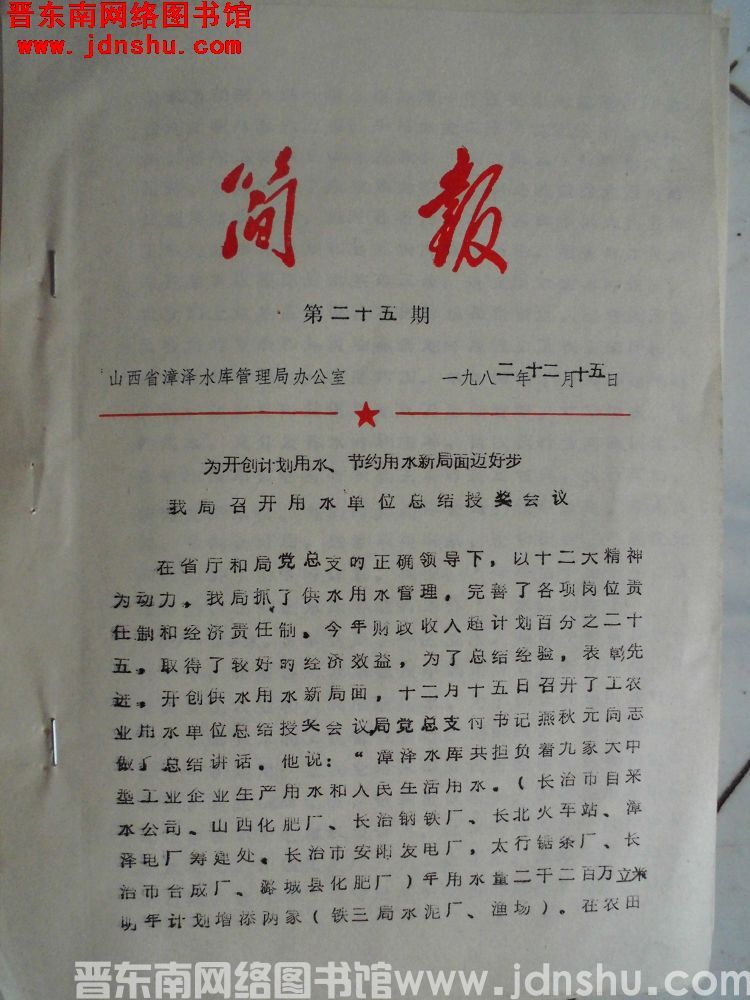 晋东南网络图书馆
www.jdnshu.com
简报
第二十五期
山西省漳泽水库管理局办公室 一九八二年十二月十五日
为开创计划用水、节约用水新局面迈好步
我局召开用水单位总结授奖会议
在省厅和局党总支的正确领导下，以十二大精神
为动力，我局抓了供水用水管理，完善了各项岗位责
任制和经济责任制。今年财政收入超计划百分之二十
五。取得了较好的经济效益，为了总结经验，表彰先
进。开创供水用水新局面，十二月十五日召开了工农
业用水单位总结授奖会议，局党总支付书记燕秋元同志
做了总结讲话。他说：“漳泽水库共担负着九家大中
型工业企业生产用水和人民生活用水。（长治市自来
水公司、山西化肥厂、长治钢铁厂、长北火车站、漳
泽电厂筹建处。长治市安阳发电厂，太行锯条厂、长
治市合成厂、潞城县化肥厂）年用水量二千二百万立米
明年计划增添两家（铁三局水泥厂、渔场）。在农田
晋东南网络图书馆www.jdnshu.com